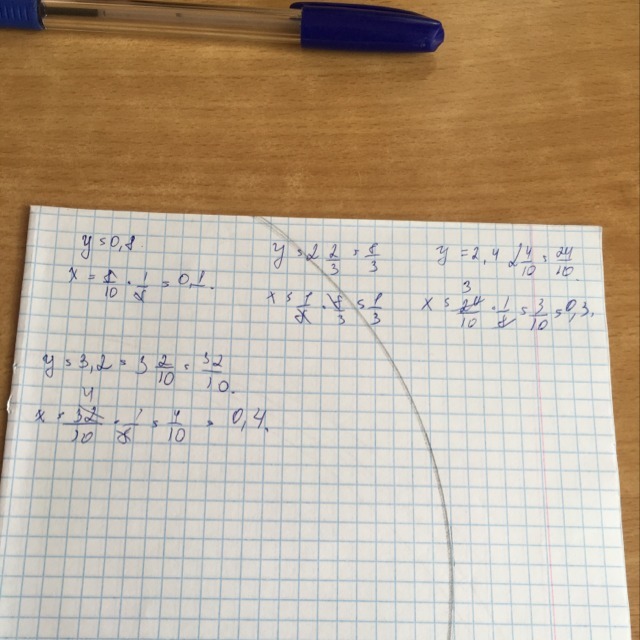 y = 0,8.
x = 8/10 · 1/8 = 0,1.
y = 2 2/3 = 8/3
x = 1/8 · 8/3 = 1/3
y = 2,4 2 4/10 = 24/10.
3
x = 24/10 · 1/8 = 3/10 = 0,3.
y = 3,2 = 3 2/10 = 32/10.
4
x = 32/10 · 1/8 = 4/10 = 0,4.